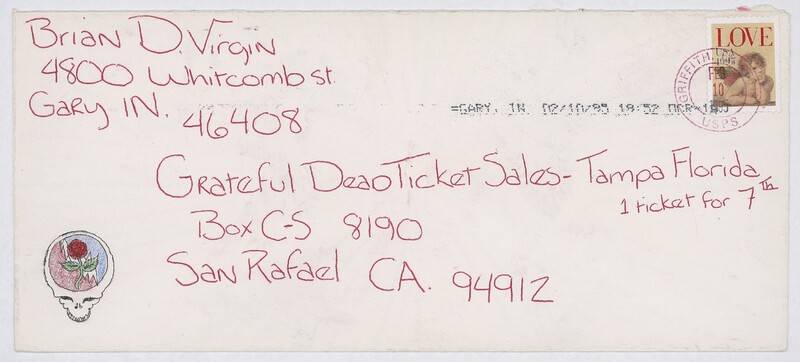 Brian D. Virgin
4800 Whitcomb st.
Gary IN.
46408
LOVE
USA
1995
GRIFFITH, IN
FEB
10
USPS
=GARY, IN 02/10/95 18:52
Grateful Dead Ticket Sales - Tampa Florida
1 ticket for 7th
Box C-S 8190
San Rafael CA. 94912